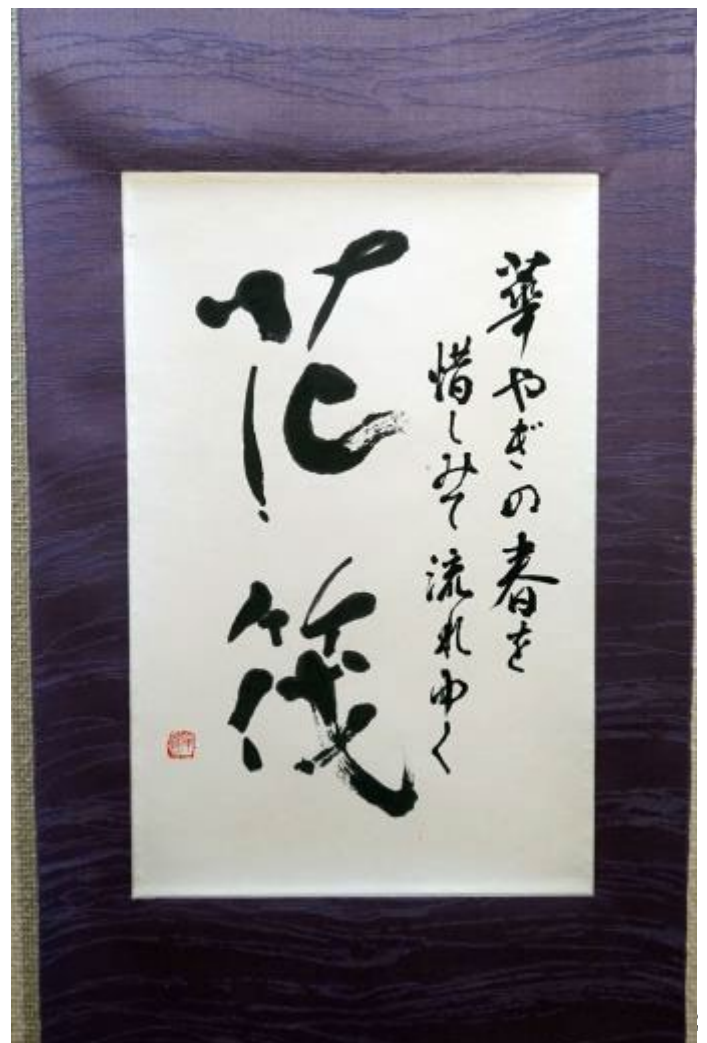 華やぎの春を
惜しみて流れゆく
花筏